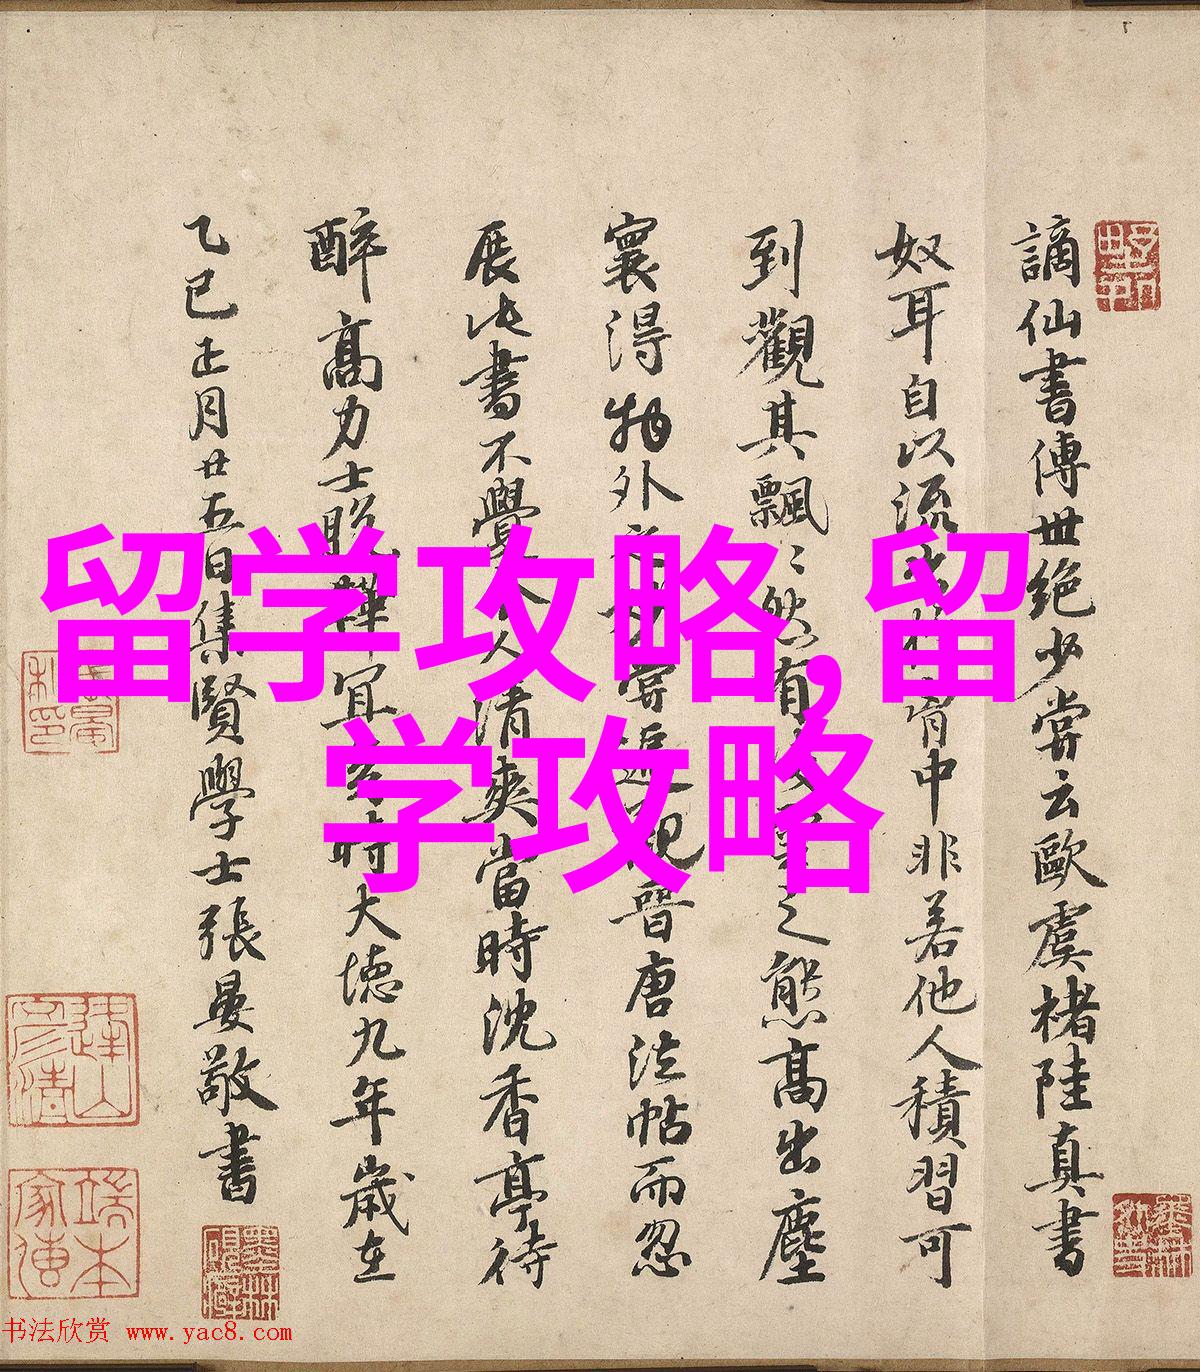 謫仙書傳世絕少嘗云歐虞褚陸真書
奴耳自以流中非若他人積習可
到觀其飄〻然有之態高出塵
寰得物外之妙嘗觀晉唐法帖而忽
展此書不覺人清爽當時沈香亭待
醉高力士脫鞾宜時大德九年歲在
乙巳正月廿五日集賢學士張晏敬書
留学攻略,留
学攻略
书法欣赏 www.yac8.com